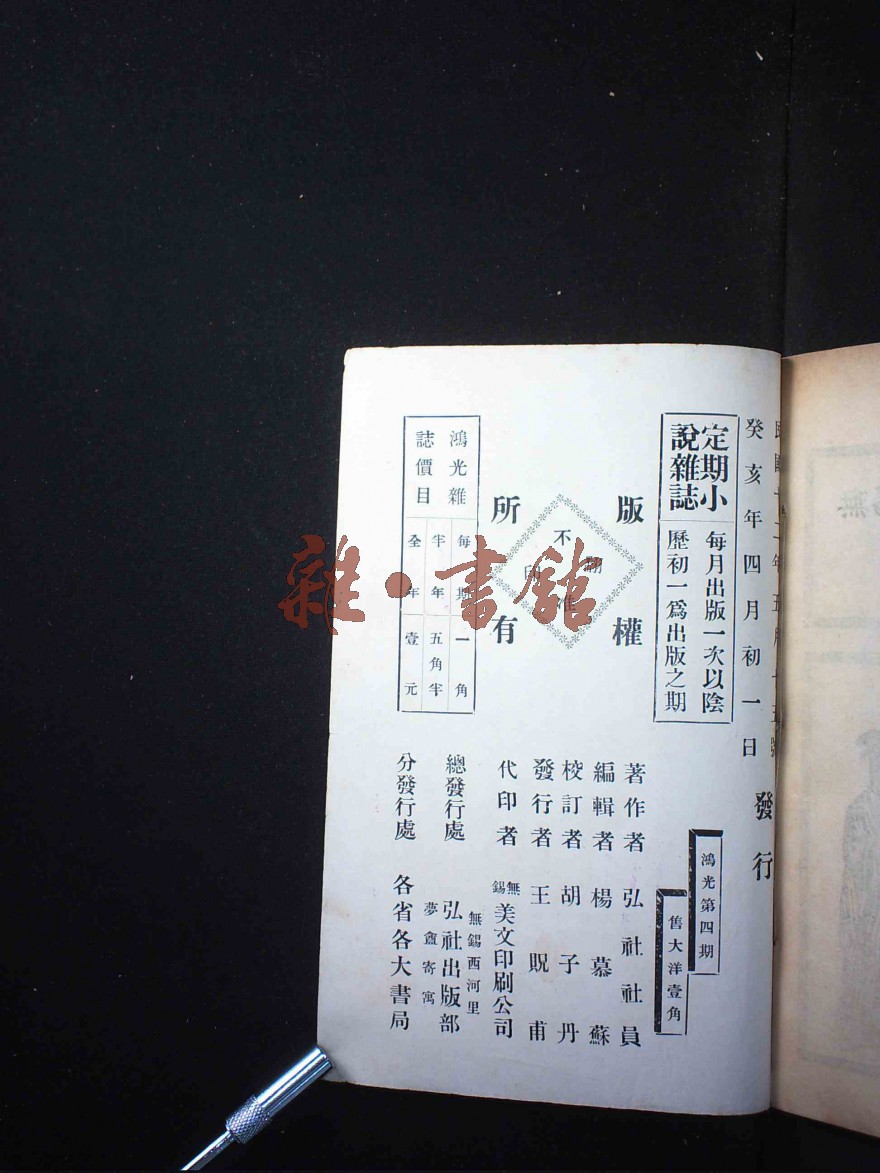 民國十二年五月十五號
癸亥年四月初一日
發行
定期小
說雜誌
每月出版一次以陰
歷初一爲出版之期
鴻光第四期
售大洋壹角
版權
所有
不准
翻印
鴻光雜
誌價目
每期一角
半年五角半
全年壹元
著作者 弘社社員
編輯者 楊慕蘇
校訂者 胡子丹
發行者 王貺甫
代印者 無錫美文印刷公司
總發行處 無錫西河里
弘社出版部
夢盦寄寓
分發行處 各省各大書局
雜·書館